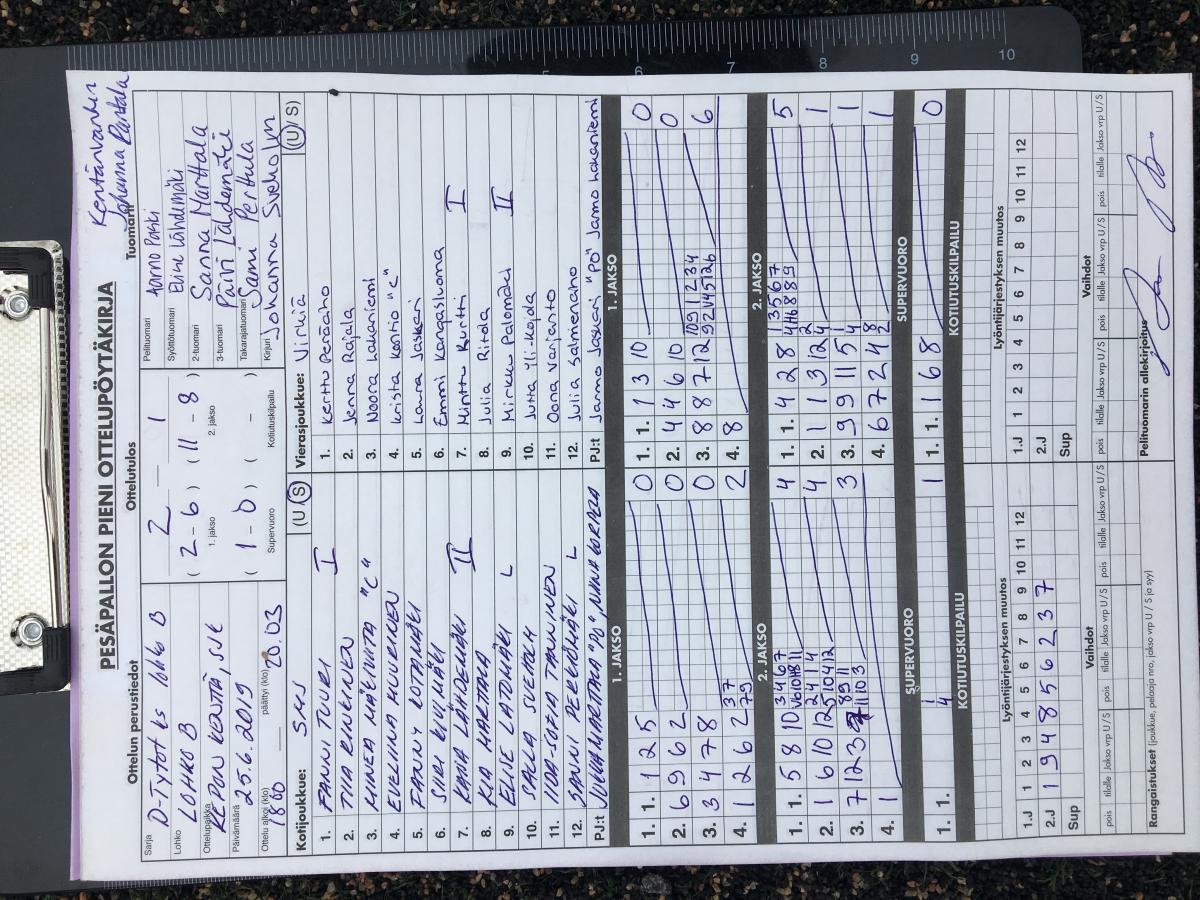 Kentänvanhin
Johanna Partala
PESÄPALLON PIENI OTTELUPÖYTÄKIRJA
Ottelun perustiedot
Sarja D-Tytöt ks lohko B
Lohko LOHKO B
Ottelupaikka REPON KENTTÄ, SJK
Päivämäärä 25.6.2019
Ottelu alkoi (klo) 1800 päättyi (klo) 20.03
Ottelutulos
2 - 1
( 2 - 6 ) ( 11 - 8 )
1. jakso 2. jakso
( 1 - 0 ) ( - )
Supervuoro Kotiutuskilpailu
Tuomarit
Pelituomari Aarno Paski
Syöttötuomari Eine Lähdemäki
2-tuomari Sanna Marttala
3-tuomari Päivi Lähdemäki
Takarajatuomari Sami Perttula
Kirjuri Johanna Sveholm
Kotijoukkue: SMJ (U / S)
1. FANNI TUURI I
2. TIIA RINKINEN
3. MINEA MÄKIVIITA "C"
4. EVELIINA HUUKINEN
5. FANNY LOTAMÄKI
6. SIRI KIVIMÄKI
7. RIINA LÄHDEMÄKI II
8. KIA MARTTALA
9. ELINE LATOMÄKI L
10. SALLA SVEHOLM
11. IIDA-SOFIA TANNINEN
12. SANNI PERKIÖMÄKI L
PJ:t JUKKA MARTTALA "PO",
Vierasjoukkue: Virkiä (U / S)
1. Kerttu Peräaho
2. Jenna Rajala
3. Noora Hakaniemi
4. Krista Kontio "C"
5. Laura Jaskari
6. Emmi Kangasluoma
7. Minttu Kurtti I
8. Julia Ritola
9. Mirkku Palomäki II
10. Jutta Yli-Kojola
11. Oona Varjansto
12. Julia Salmenaho
PJ:t Jarmo Jaskari "PO" Jarmo Hakaniemi
1. JAKSO
1. 1. 1 2 5 0
2. 6 9 6 2 0
3. 3 4 7 8 0
4. 1 2 6 2 3 7 7 9 2
1. JAKSO
1. 1. 1 3 10 0
2. 4 4 6 10 0
3. 8 8 7 12 10 9 1 2 3 4 6
4. 8
2. JAKSO
1. 1. 5 8 10 3 4 6 7 4
2. 1 6 10 12 2 4 4 4
3. 7 12 3 8 9 11 3
4. 1
2. JAKSO
1. 1. 4 2 8 1 3 5 6 7 5
2. 1 1 3 12 2 4 1
3. 9 9 11 5 1 4 1
4. 6 7 2 4 8 2 1
SUPERVUORO
1. 1. 1 4 1
SUPERVUORO
1. 1. 1 6 8 0
KOTIUTUSKILPAILU
KOTIUTUSKILPAILU
Lyöntijärjestyksen muutos
1.J 1 2 3 4 5 6 7 8 9 10 11 12
2.J 1 9 4 8 5 6 2 3 7
Sup
Lyöntijärjestyksen muutos
1.J 1 2 3 4 5 6 7 8 9 10 11 12
2.J
Sup
Vaihdot
pois tilalle Jakso vrp U / S pois tilalle Jakso vrp U / S pois tilalle Jakso vrp U / S
Vaihdot
pois tilalle Jakso vrp U / S pois tilalle Jakso vrp U / S pois tilalle Jakso vrp U / S
Rangaistukset (joukkue, pelaaja nro, jakso vrp U / S ja syy)
Pelituomarin allekirjoitus
6 7 8 9 10